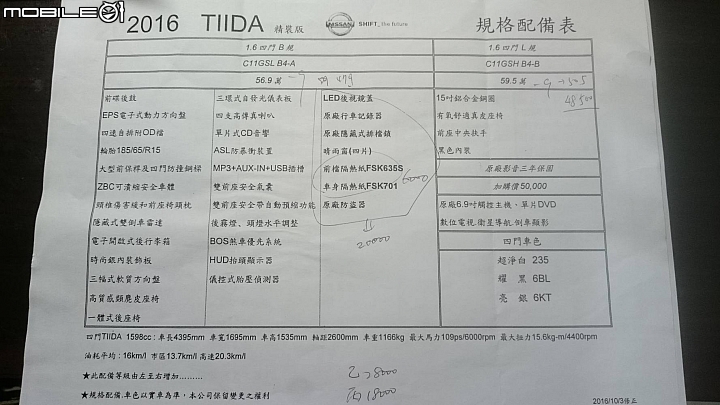 MOBILE01
2016 TIIDA 精裝版
NISSAN SHIFT_the future
規格配備表
1.6 四門 B 規
1.6 四門 L 規
C11GSL B4-A
C11GSH B4-B
56.9 萬
59.5 萬
48500
前碟後鼓
EPS電子式動力方向盤
四速自排附OD檔
輪胎185/65/R15
大型前保桿及四門防撞鋼樑
ZBC可潰縮安全車體
頸椎傷害緩和前座椅頭枕
隱藏式雙倒車雷達
電子開啟式後行李箱
時尚銀內裝飾板
三幅式軟質方向盤
高質感類麂皮座椅
一體式後座椅
三環式自發光儀表板
四支高傳真喇叭
單片式CD音響
ASL防暴衝裝置
MP3+AUX-IN+USB插槽
雙前座安全氣囊
雙前座安全帶自動預縮功能
後霧燈、頭燈水平調整
BOS煞車優先系統
HUD抬頭顯示器
儀控式胎壓偵測器
LED後視鏡蓋
原廠行車記錄器
原廠隱藏式排檔鎖
晴雨窗(四片)
前檔隔熱紙FSK635S
車身隔熱紙FSK701
6000
原廠防盜器
20000
15吋鋁合金鋼圈
有氧舒適真皮座椅
前座中央扶手
黑色內裝
原廠影音三年保固
加購價50,000
原廠6.9吋觸控主機、單片DVD
數位電視.衛星導航.倒車顯影
四門車色
超淨白 235
耀 黑 6BL
亮 銀 6KT
四門TIIDA 1598cc : 車長4395mm 車寬1695mm 車高1535mm 軸距2600mm 車重1166kg 最大馬力109ps/6000rpm 最大扭力15.6kg-m/4400rpm
油耗平均 : 16km/l 市區13.7km/l 高速20.3km/l
★此配備等級由左至右增加………
★規格配備.車色以實車為準，本公司保留變更之權利
乙 > 8000
丙 18000
2016/10/3修正